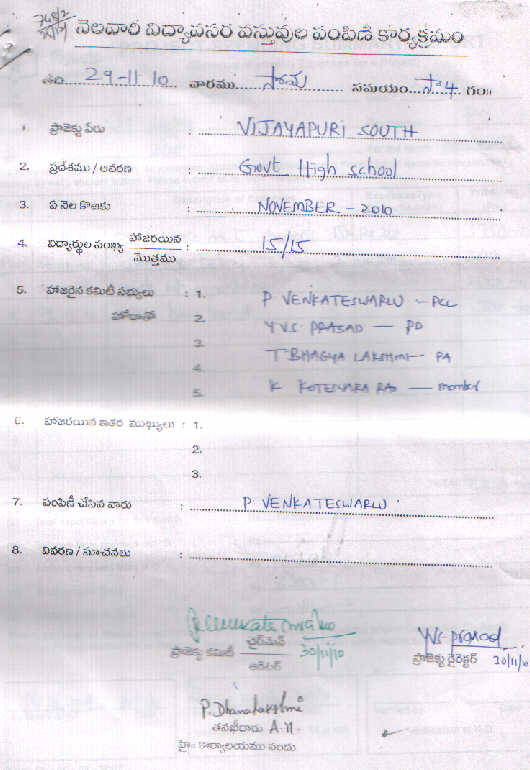 నెలవారి విద్యావసర వస్తువుల పంపిణి కార్యక్రమం
తేది 29-11-10 వారము సోమ సమయం సా 4 గం॥
1. ప్రాజెక్టు పేరు : VIJAYAPURI SOUTH
2. ప్రదేశము / ఆవరణ : Govt High school
3. ఏ నెల కొఱకు : NOVEMBER - 2010
4. విద్యార్థుల సంఖ్య హాజరయిన / మొత్తము : 15/15
5. హాజరైన కమిటీ సభ్యులు : 1. P VENKATESWARLU - PCC
హోదాతో 2. Y.V.S. PRASAD — PD
3. T BHAGYA LAKSHMI - PA
4.
5. K KOTESWARA RAO — member
6. హాజరయిన ఇతర ముఖ్యులు : 1.
2.
3.
7. పంపిణీ చేసిన వారు : P VENKATESWARLU
8. వివరణ / సూచనలు :
ప్రాజెక్టు కమిటీ ఛైర్‌మెన్ 30/11/10
ప్రాజెక్టు డైరెక్టర్ 30/11/10
P. Dhanalakshmi
తనిఖీదారు A.N.
హై॥ కార్యాలయము నందు